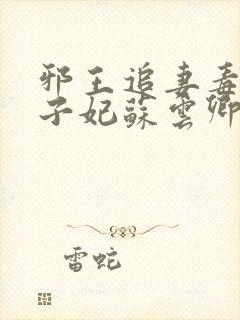 邪王追妻毒
子妃蘇雲卿
雷蛇